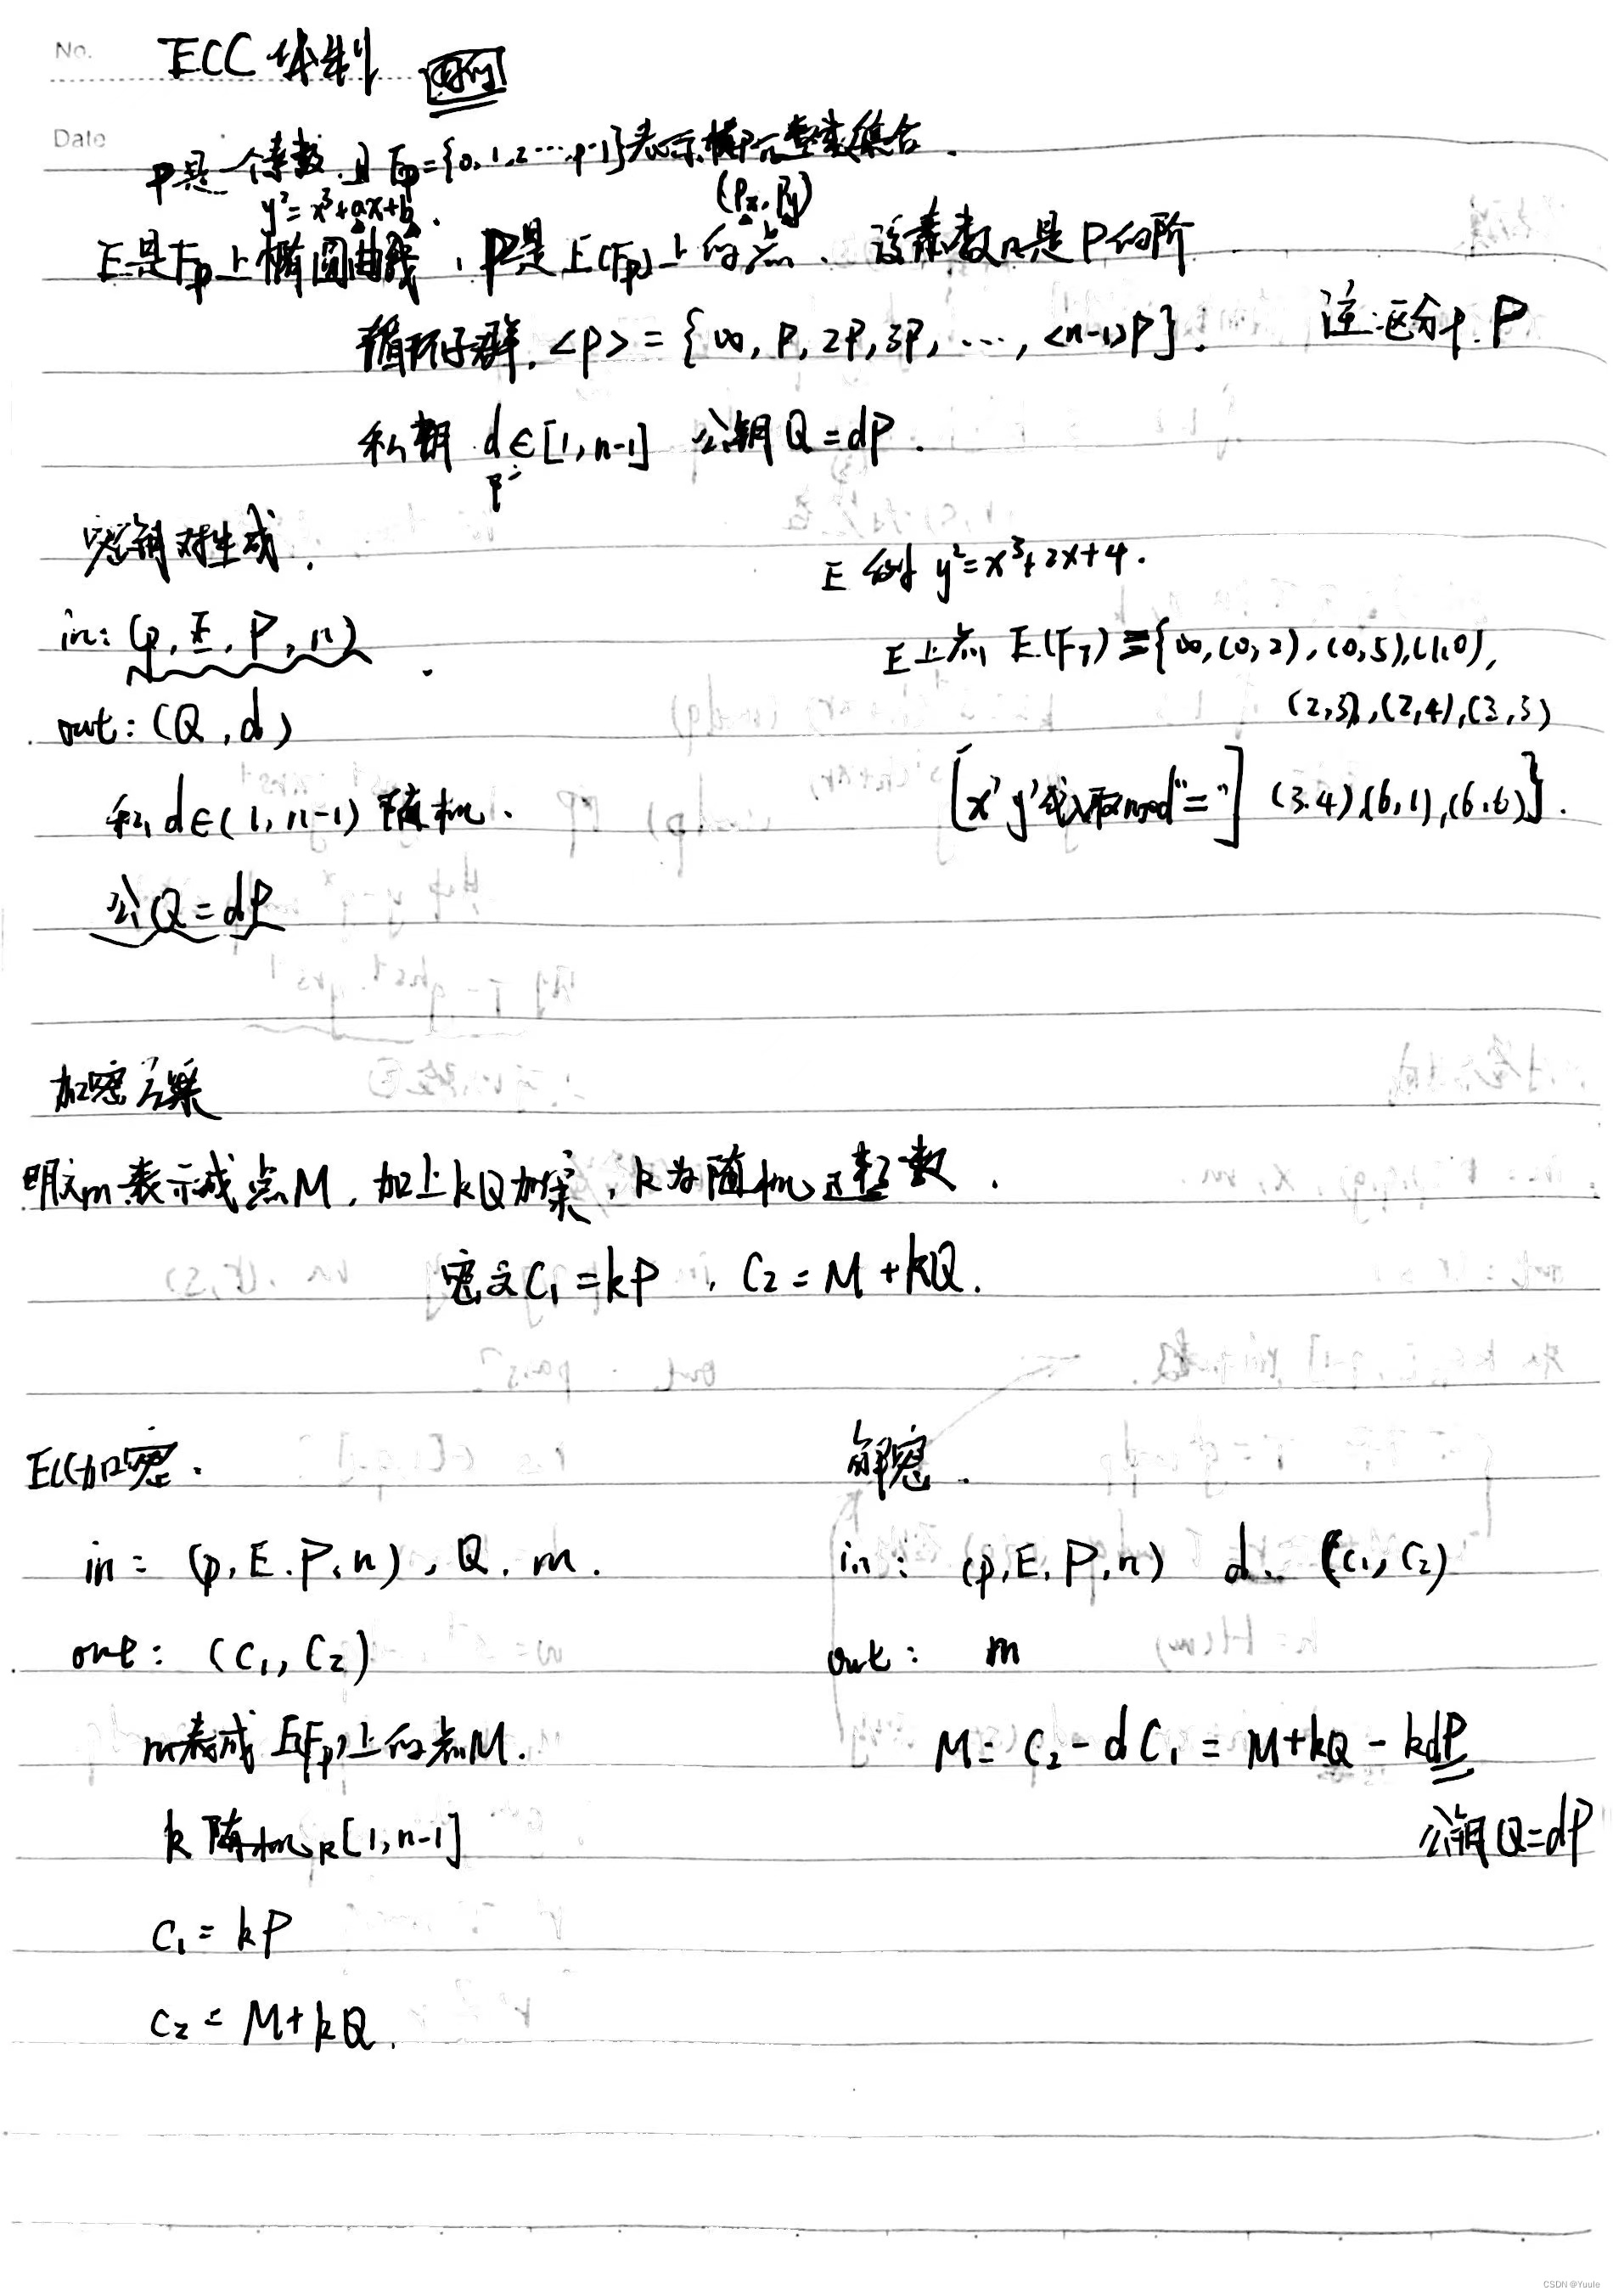 No.
ECC 体制
Date
p是一个素数,且 Fp={0,1,2…p-1}表示模p的整数集合.
y²=x³+ax+b.
(Px,Py)
E是Fp上椭圆曲线,P是E(Fp)上的点.设素数n是P的阶
循环子群.<P>={∞, P, 2P, 3P, …, <n-1>P}.
注:区分p.P
私钥 d∈[1,n-1] 公钥 Q=dP.
密钥对生成.
E 例 y²=x³+2x+4.
in: (p, E, P, n)
E上点 E(F7)={∞,(0,2),(0,5),(1,0),
out: (Q,d)
(2,3),(2,4),(3,3)
私 d∈(1,n-1) 随机.
[x' y'代入取mod"="] (3.4)(6,1),(6.6)}.
公Q=dP
加密方案
明文m表示成点M,加上kQ加密,k为随机正整数.
密文C₁=kP , C₂=M+kQ.
ECC加密.
解密.
in: (p,E.P,n),Q.m.
in: (p,E,P,n) d. (C₁,C₂)
out: (C₁,C₂)
out: m
m表成 E(Fp)上的点M.
M=C₂-dC₁=M+kQ-kdP
k 随机R[1,n-1]
公钥Q=dP
C₁=kP
C₂=M+kQ.
CSDN @Yuule